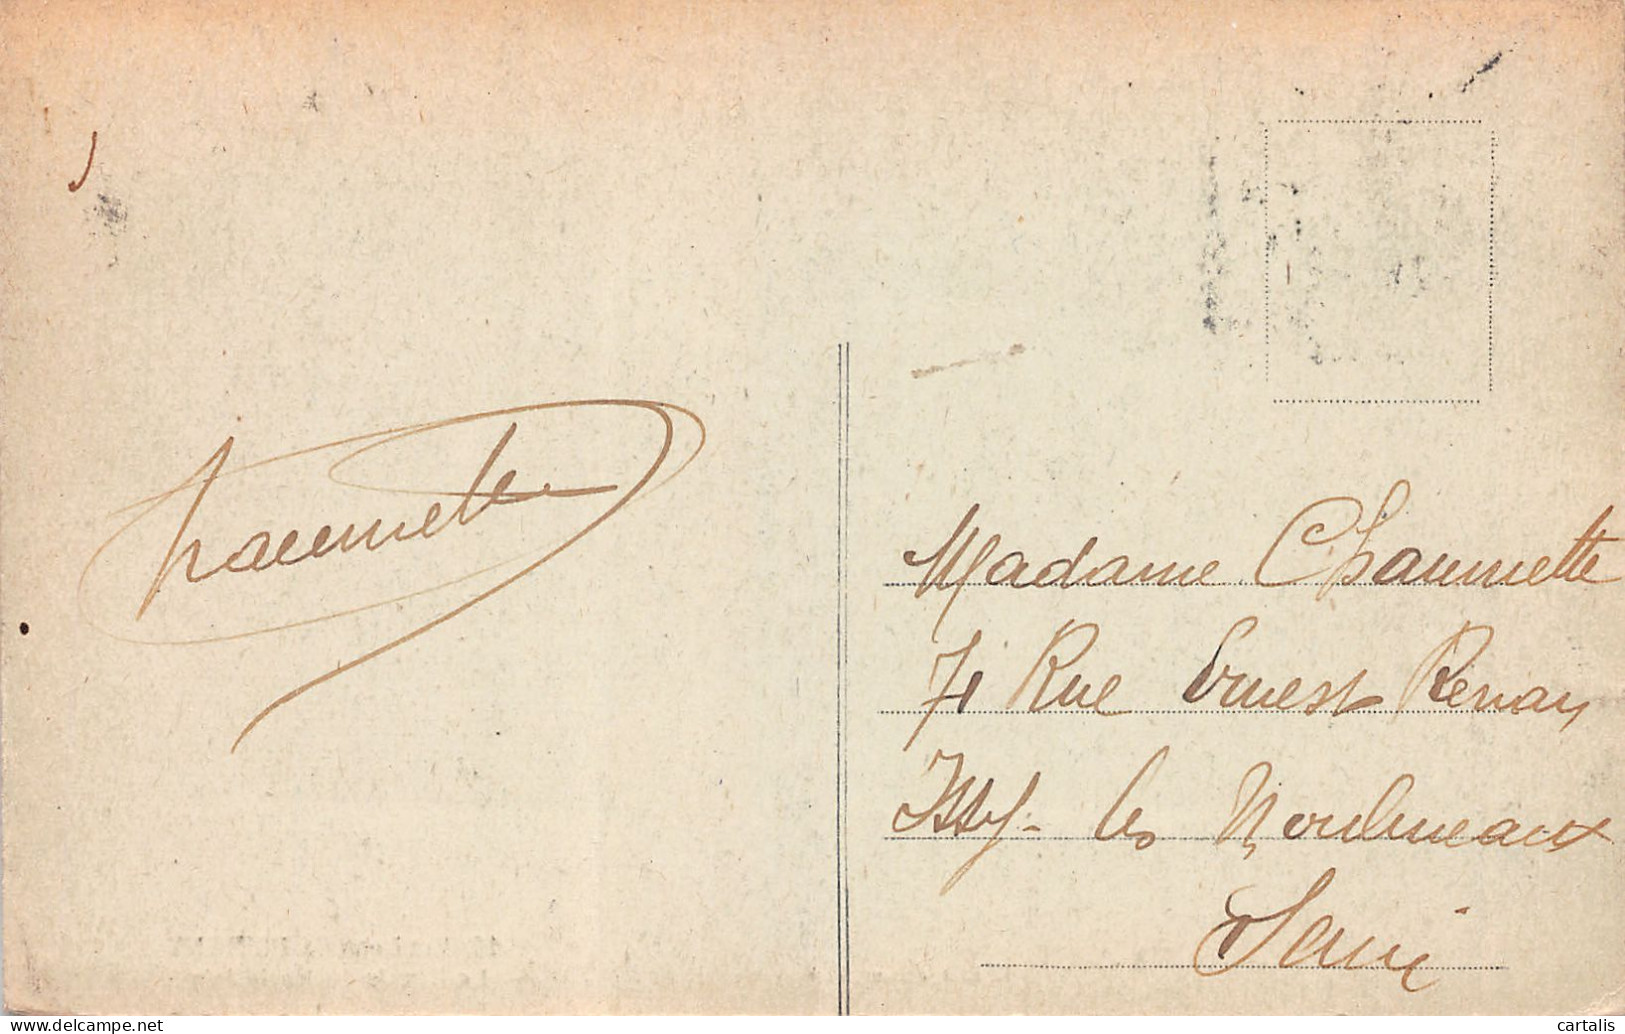 Chaumette
Madame Chaumette
71 Rue Ernest Renan
Issy-les Moulineaux
Seine
delcampe.net
cartalis